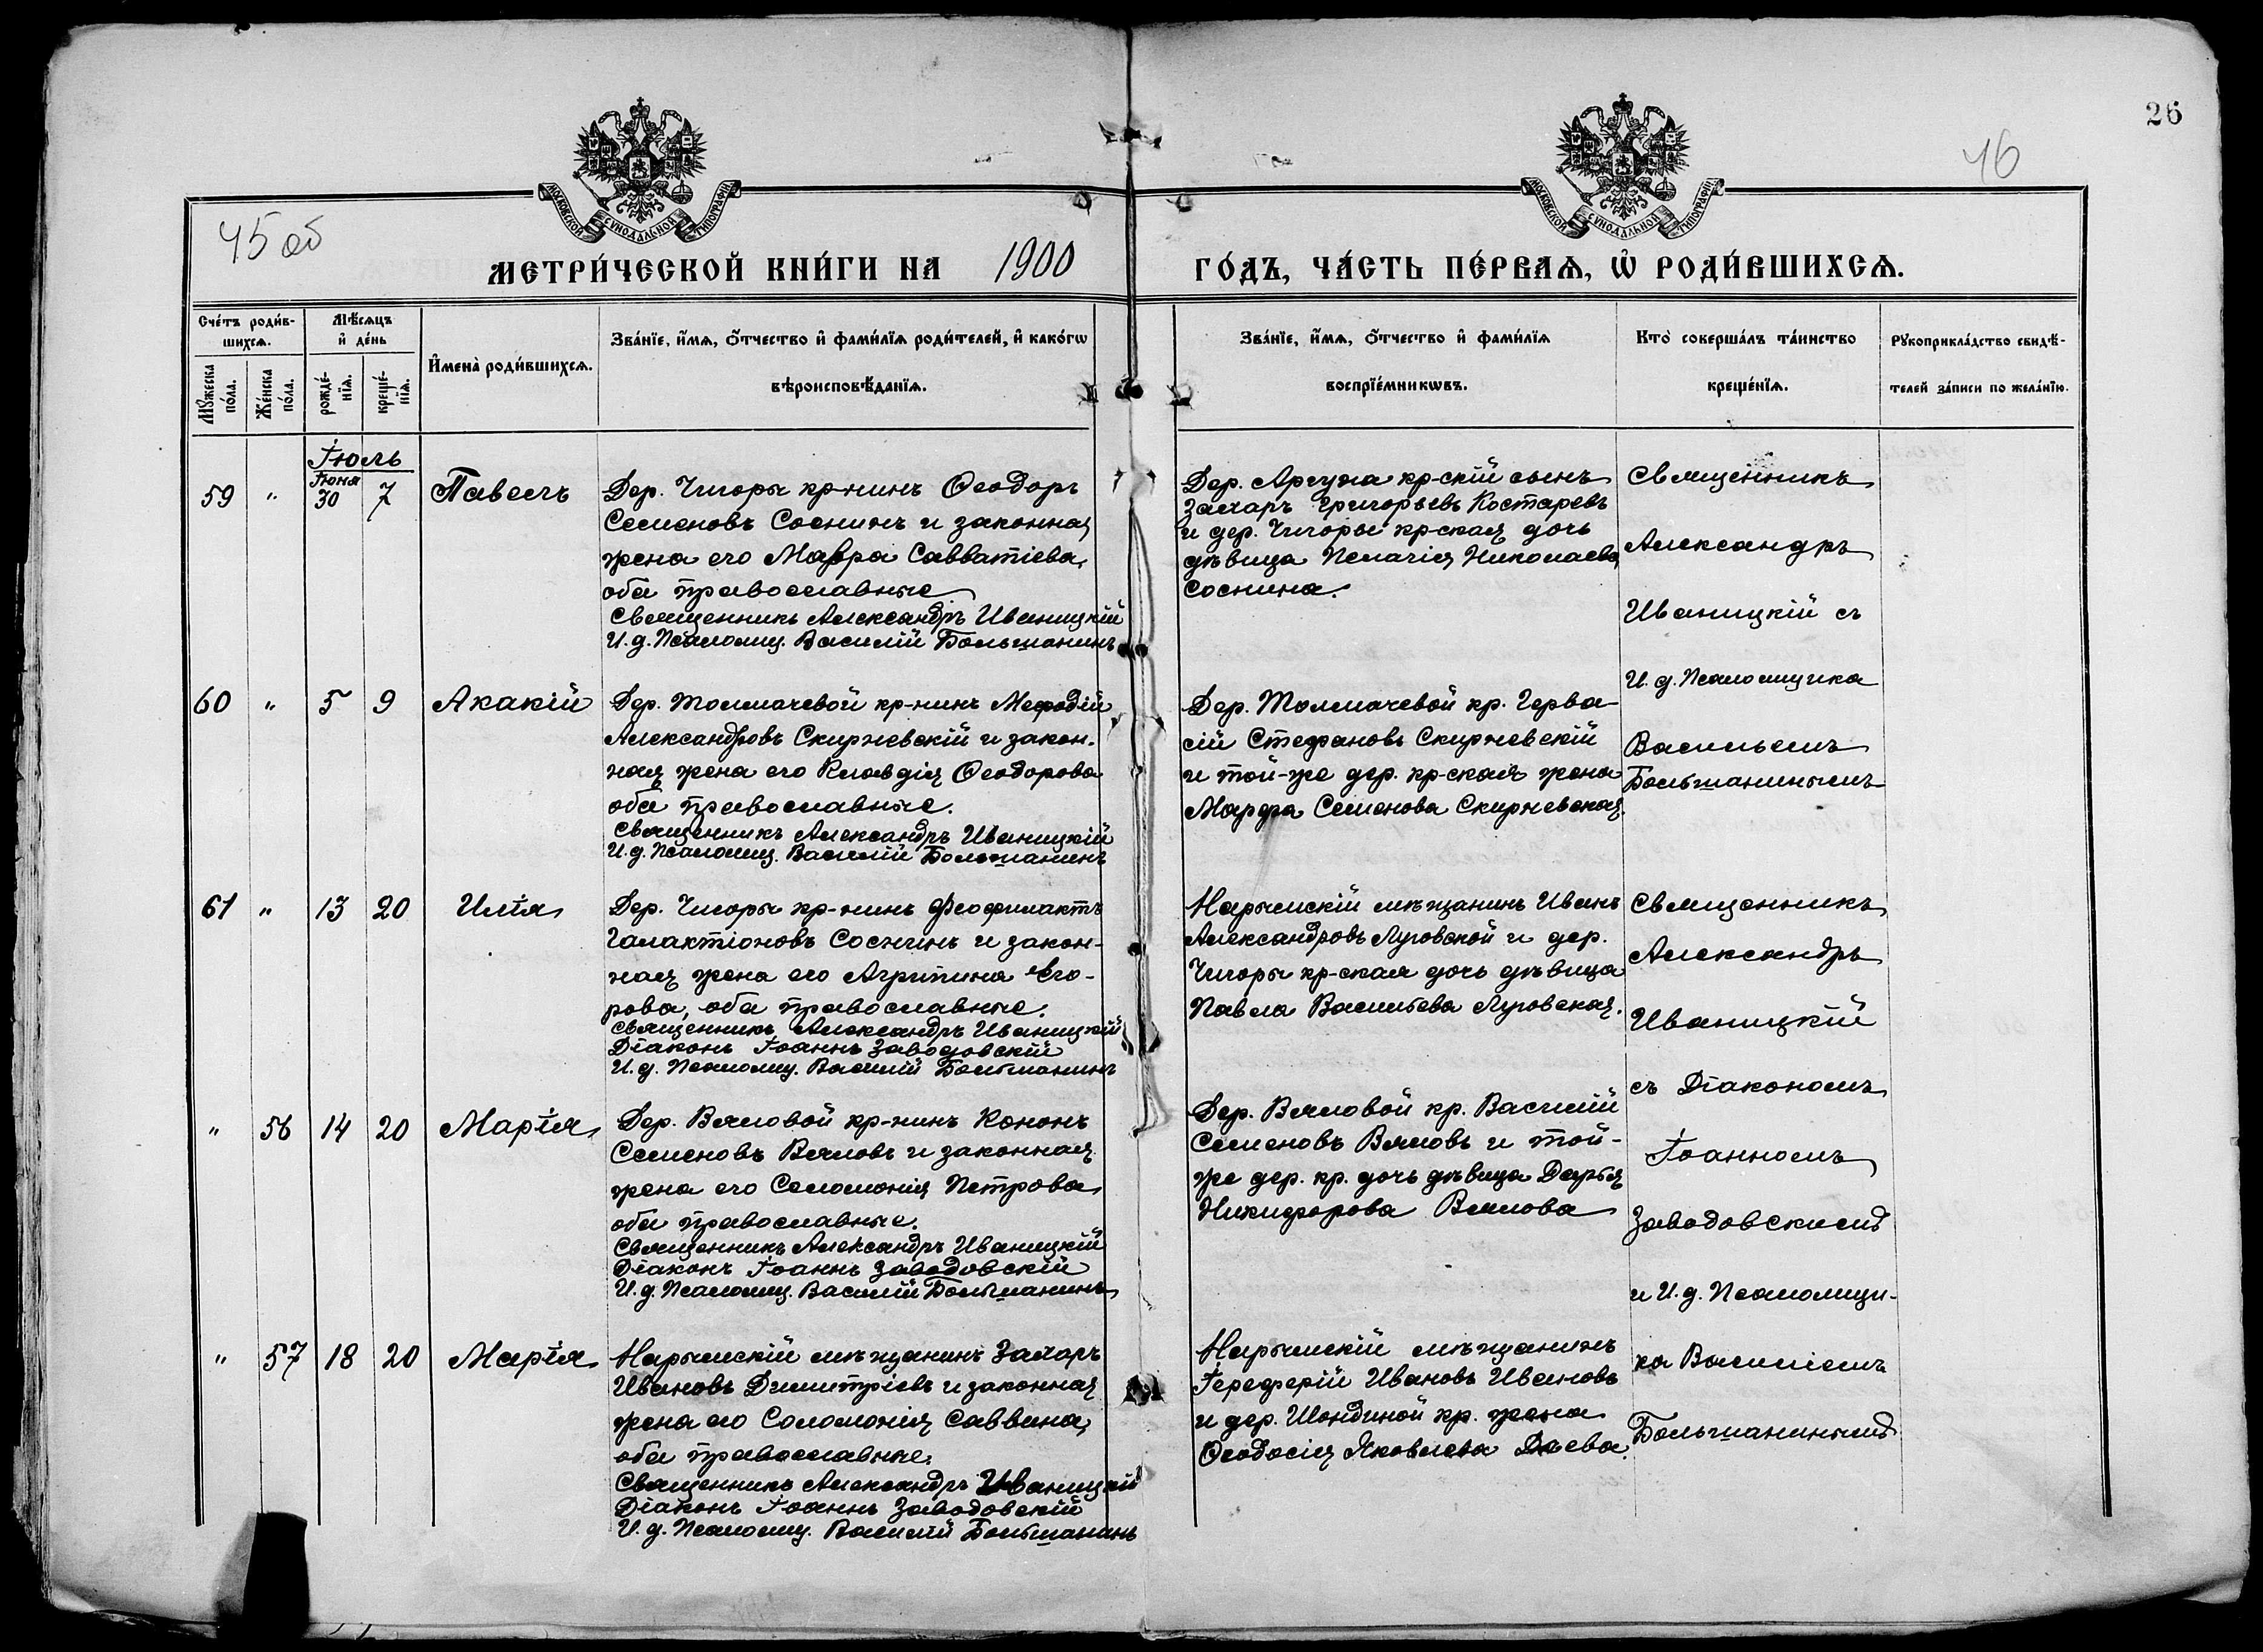 26
46
45 об
МОСКОВСКОЙ СУНОДАЛЬНОЙ ТИПОГРАФІИ
МОСКОВСКОЙ СУНОДАЛЬНОЙ ТИПОГРАФІИ
МЕТРИ́ЧЕСКОЙ КНИ́ГИ НА 1900 ГО́ДЪ, ЧА́СТЬ ПЕ́РВАѦ, Ѡ҆ РОДИ́ВШИХСѦ.
Сче́тъ роди́в-
шихсѧ.
Мѣ́сѧцъ
и҆ де́нь
И҆мена̀ роди́вшихсѧ.
Зва́нїе, и҆́мѧ, ѻ҆́тчество и҆ фами́лїѧ роди́телей, и҆ како́гѡ
вѣроисповѣ́данїѧ.
Зва́нїе, и҆́мѧ, ѻ҆́тчество и҆ фами́лїѧ
воспрїе́мникѡвъ.
Кто̀ соверша́лъ та́инство
креще́нїѧ.
Рꙋкоприкла́дство свидѣ́-
телей за́писи по жела́нїю.
Мꙋ́жеска
по́ла.
Же́нска
по́ла.
рожде́-
нїѧ.
креще́-
нїѧ.
Іюль
Іюня
59 " 30 7 Павелъ
Дер. Чигоры кр-нинъ Ѳеодоръ
Семеновъ Соснинъ и законная
жена его Мавра Савватіева,
оба православные
Священникъ Александръ Иваницкій
И. д. Псаломщ. Василій Большанинъ
Дер. Аргужа кр-скій сынъ
Захаръ Григорьевъ Костаревъ
и дер. Чигоры кр-ская дочь
дѣвица Пелагія Николаева
Соснина.
Священникъ
Александръ
Иваницкій съ
И. д. Псаломщика
Васильемъ
Большанинымъ
60 " 5 9 Акакій
Дер. Толмачевой кр-нинъ Мефодій
Александровъ Скирневскій и закон.
ная жена его Клавдія Ѳеодорова
оба православные.
Священникъ Александръ Иваницкій
И. д. Псаломщ. Василій Большанинъ
Дер. Толмачевой кр. Герва-
сій Стефановъ Скирневскій
и той-же дер. кр-ская жена
Марфа Семенова Скирневская.
61 " 13 20 Илія
Дер. Чигоры кр-нинъ Феофилактъ
Галактіоновъ Соснинъ и закон-
ная жена его Агрипина Его-
рова, оба православные.
Священникъ Александръ Иваницкій
Діаконъ Іоаннъ Заводовскій
И. д. Псаломщ. Василій Большанинъ
Нарымскій мѣщанинъ Иванъ
Александровъ Луговской и дер.
Чигоры кр-ская дочь дѣвица
Павла Васильева Луговская.
Священникъ
Александръ
Иваницкій
съ Діакономъ
Іоанномъ
Заводовскимъ
и И. д. Псаломщи-
ка Василіемъ
Большанинымъ
" 56 14 20 Марія
Дер. Вяловой кр-нинъ Кононъ
Семеновъ Вяловъ и законная
жена его Соломонія Петрова
оба православные.
Священникъ Александръ Иваницкій
Діаконъ Іоаннъ Заводовскій
И. д. Псаломщ. Василій Большанинъ
Дер. Вяловой кр. Василій
Семеновъ Вяловъ и той-
же дер. кр. дочь дѣвица Дарья
Никифорова Вялова
" 57 18 20 Марія
Нарымскій мѣщанинъ Захаръ
Ивановъ Димитріевъ и законная
жена его Соломонія Саввина,
оба православные.
Священникъ Александръ Иваницкій
Діаконъ Іоаннъ Заводовскій
И. д. Псаломщ. Василій Большанинъ
Нарымскій мѣщанинъ
Ивановъ Ивановъ
и дер. Шондиной кр. жена
Ѳеодосія Яковлева Деева.